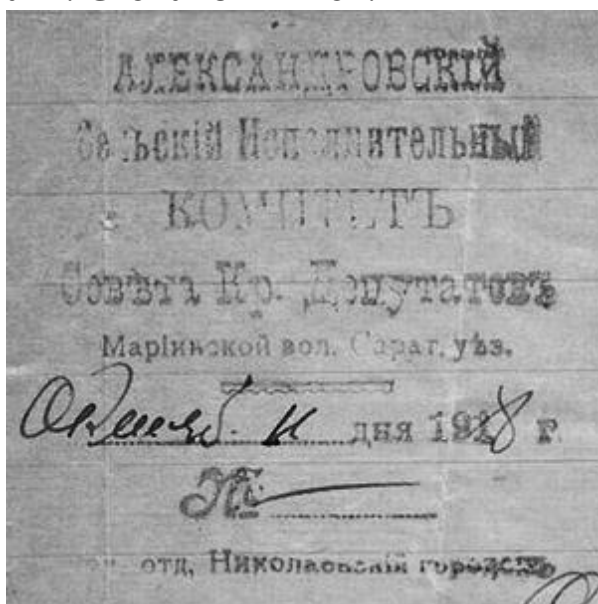 АЛЕКСАНДРОВСКІЙ
Сельскій Исполнительный
КОМИТЕТЪ
Совѣта Кр. Депутатовъ
Маріинской вол. Сарат. уѣз.
дня 1918 г.
№
отд. Николаевскій городокъ